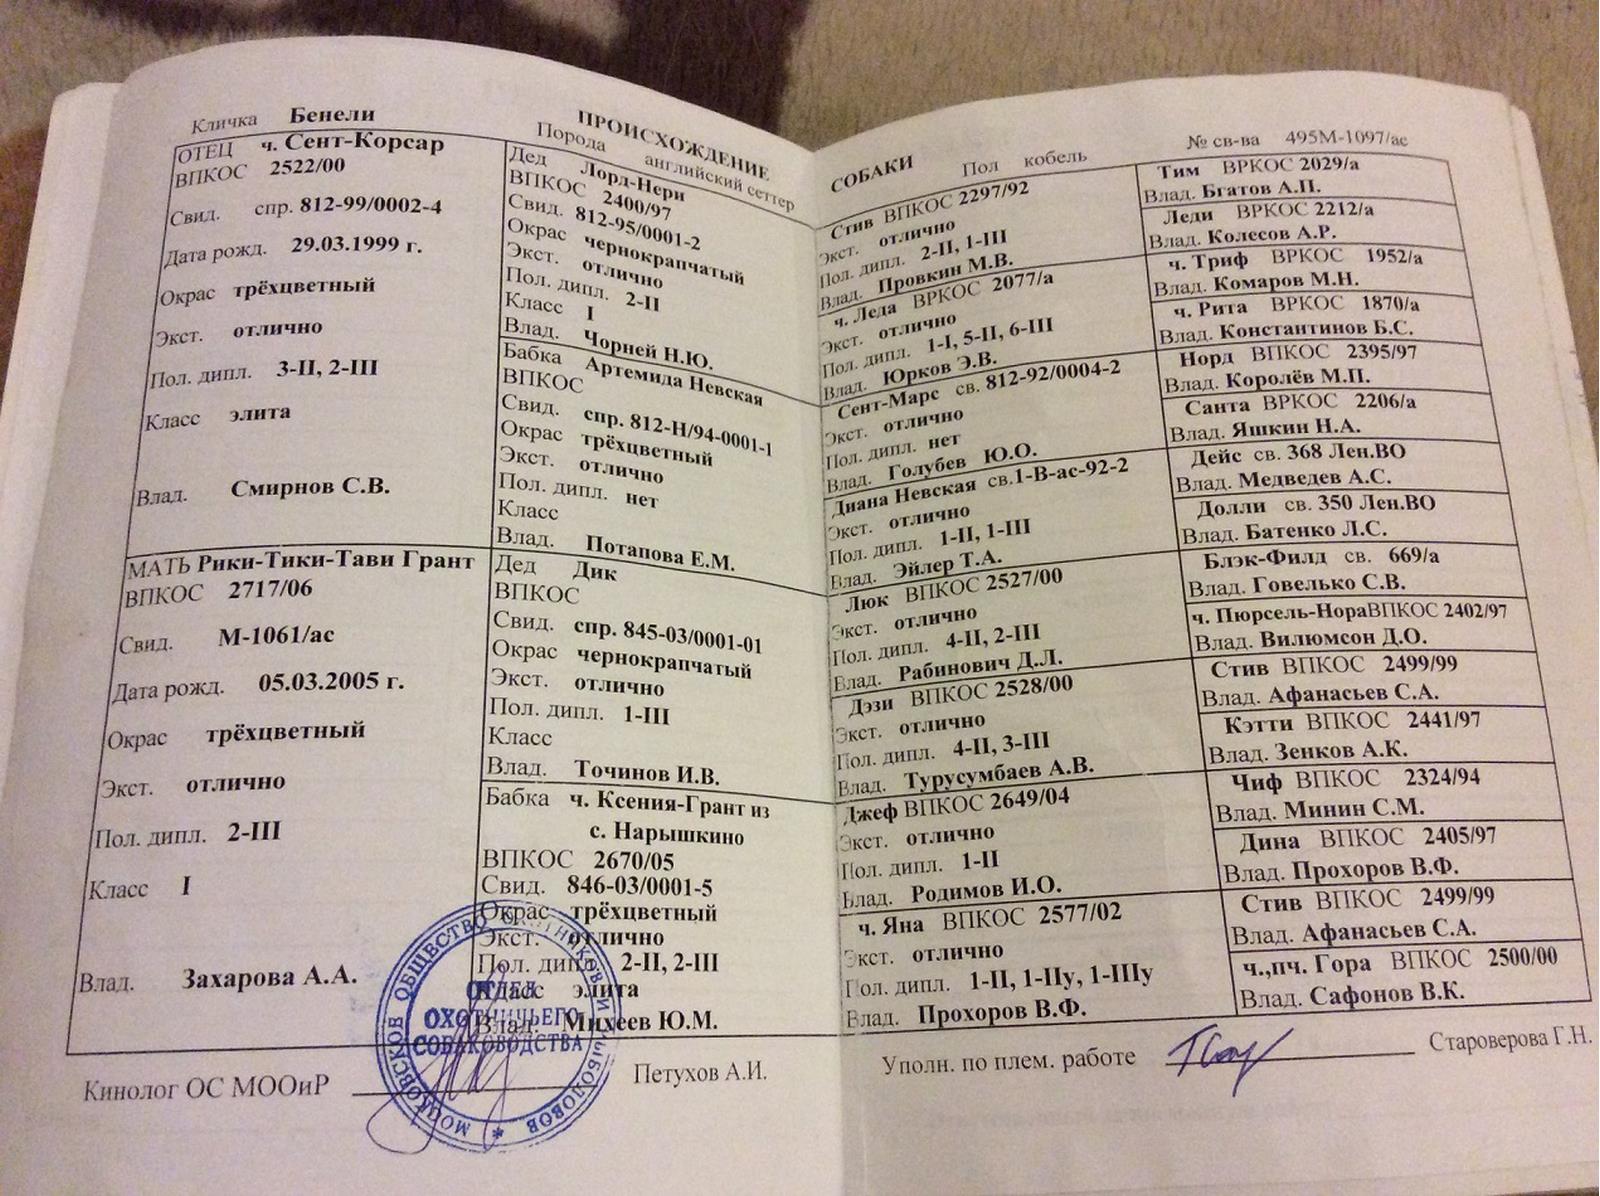 Кличка Бенели
ПРОИСХОЖДЕНИЕ
Порода английский сеттер
ОТЕЦ ч. Сент-Корсар
ВПКОС 2522/00
Свид. спр. 812-99/0002-4
Дата рожд. 29.03.1999 г.
Окрас трёхцветный
Экст. отлично
Пол. дипл. 3-II, 2-III
Класс элита
Влад. Смирнов С.В.
МАТЬ Рики-Тики-Тави Грант
ВПКОС 2717/06
Свид. М-1061/ас
Дата рожд. 05.03.2005 г.
Окрас трёхцветный
Экст. отлично
Пол. дипл. 2-III
Класс I
Влад. Захарова А.А.
Дед Лорд-Нери
ВПКОС 2400/97
Свид. 812-95/0001-2
Окрас чернокрапчатый
Экст. отлично
Пол. дипл. 2-II
Класс I
Влад. Чорней Н.Ю.
Бабка Артемида Невская
ВПКОС
Свид. спр. 812-Н/94-0001-1
Окрас трёхцветный
Экст. отлично
Пол. дипл. нет
Класс
Влад. Потапова Е.М.
Дед Дик
ВПКОС
Свид. спр. 845-03/0001-01
Окрас чернокрапчатый
Экст. отлично
Пол. дипл. 1-III
Класс
Влад. Точинов И.В.
Бабка ч. Ксения-Грант из
с. Нарышкино
ВПКОС 2670/05
Свид. 846-03/0001-5
Окрас трёхцветный
Экст. отлично
Пол. дипл. 2-II, 2-III
Класс элита
Влад. Михеев Ю.М.
МОСКОВСКОЕ ОБЩЕСТВО ОХОТНИКОВ И РЫБОЛОВОВ
ОТДЕЛ
ОХОТНИЧЬЕГО
СОБАКОВОДСТВА
Кинолог ОС МООиР Петухов А.И.
СОБАКИ Пол кобель № св-ва 495М-1097/ас
Стив ВПКОС 2297/92
Экст. отлично
Пол. дипл. 2-II, 1-III
Влад. Провкин М.В.
ч. Леда ВРКОС 2077/а
Экст. отлично
Пол. дипл. 1-I, 5-II, 6-III
Влад. Юрков Э.В.
Сент-Марс св. 812-92/0004-2
Экст. отлично
Пол. дипл. нет
Влад. Голубев Ю.О.
Диана Невская св.1-В-ас-92-2
Экст. отлично
Пол. дипл. 1-II, 1-III
Влад. Эйлер Т.А.
Люк ВПКОС 2527/00
Экст. отлично
Пол. дипл. 4-II, 2-III
Влад. Рабинович Д.Л.
Дэзи ВПКОС 2528/00
Экст. отлично
Пол. дипл. 4-II, 3-III
Влад. Турусумбаев А.В.
Джеф ВПКОС 2649/04
Экст. отлично
Пол. дипл. 1-II
Влад. Родимов И.О.
ч. Яна ВПКОС 2577/02
Экст. отлично
Пол. дипл. 1-II, 1-IIу, 1-IIIу
Влад. Прохоров В.Ф.
Тим ВРКОС 2029/а
Влад. Бгатов А.П.
Леди ВРКОС 2212/а
Влад. Колесов А.Р.
ч. Триф ВРКОС 1952/а
Влад. Комаров М.Н.
ч. Рита ВРКОС 1870/а
Влад. Константинов Б.С.
Норд ВПКОС 2395/97
Влад. Королёв М.П.
Санта ВРКОС 2206/а
Влад. Яшкин Н.А.
Дейс св. 368 Лен.ВО
Влад. Медведев А.С.
Долли св. 350 Лен.ВО
Влад. Батенко Л.С.
Блэк-Филд св. 669/а
Влад. Говелько С.В.
ч. Пюрсель-НораВПКОС 2402/97
Влад. Вилюмсон Д.О.
Стив ВПКОС 2499/99
Влад. Афанасьев С.А.
Кэтти ВПКОС 2441/97
Влад. Зенков А.К.
Чиф ВПКОС 2324/94
Влад. Минин С.М.
Дина ВПКОС 2405/97
Влад. Прохоров В.Ф.
Стив ВПКОС 2499/99
Влад. Афанасьев С.А.
ч.,пч. Гора ВПКОС 2500/00
Влад. Сафонов В.К.
Уполн. по плем. работе Староверова Г.Н.